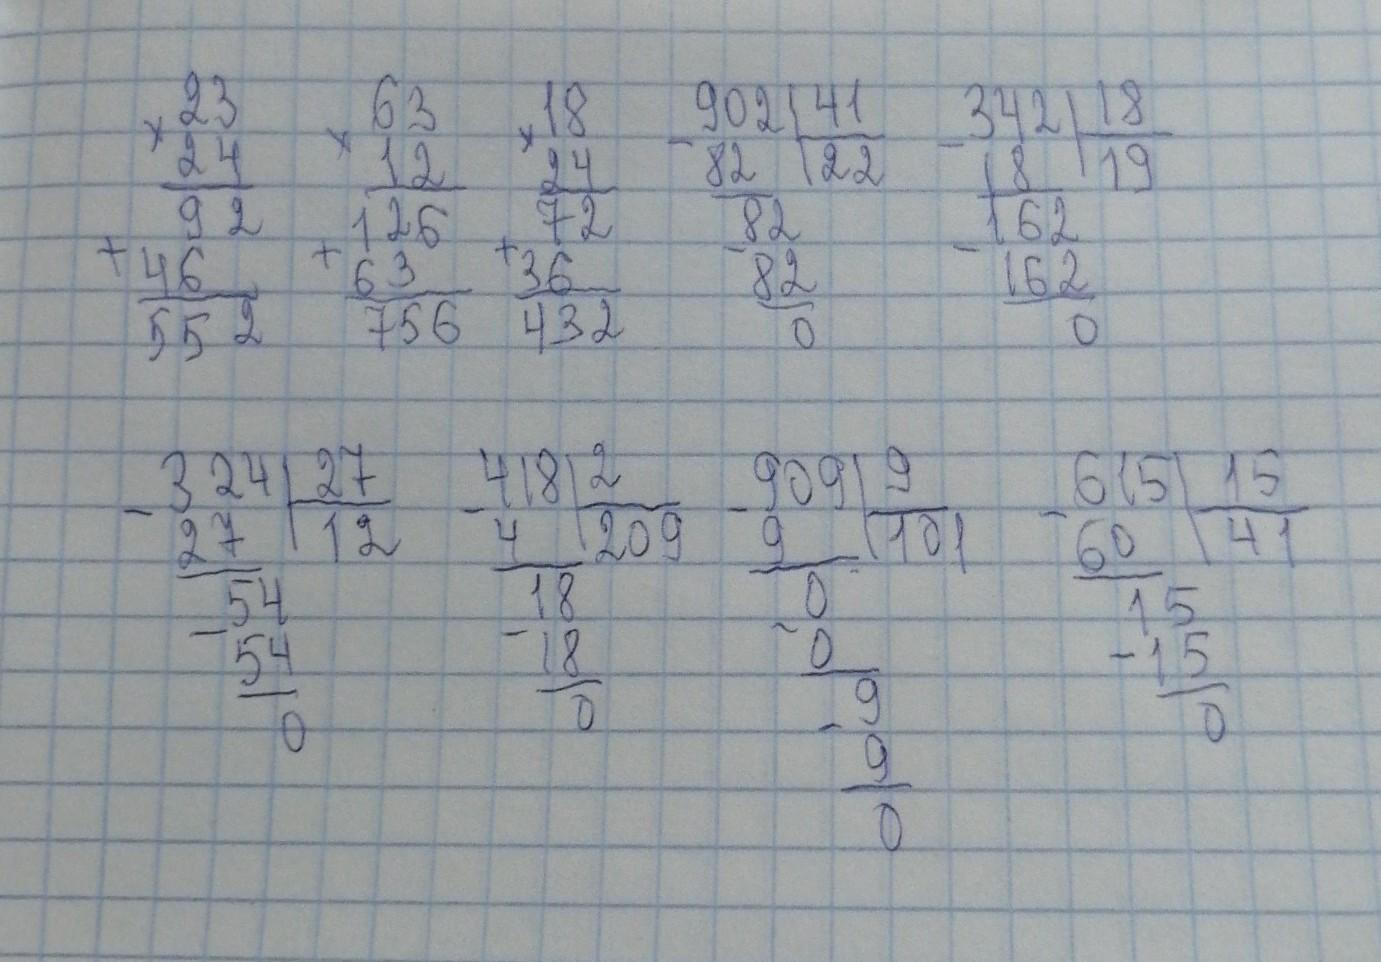 23 63 18 902 | 41 342 | 18
× 24 × 12 × 24 - 82 | 22 - 18 | 19
92 126 72 82 162
+ 46 + 63 + 36 - 82 - 162
552 756 432 0 0
324 | 27 418 | 2 909 | 9 615 | 15
- 27 | 12 - 4 | 209 - 9 | 101 - 60 | 41
54 18 0 15
- 54 - 18 - 0 - 15
0 0 9 0
- 9
0